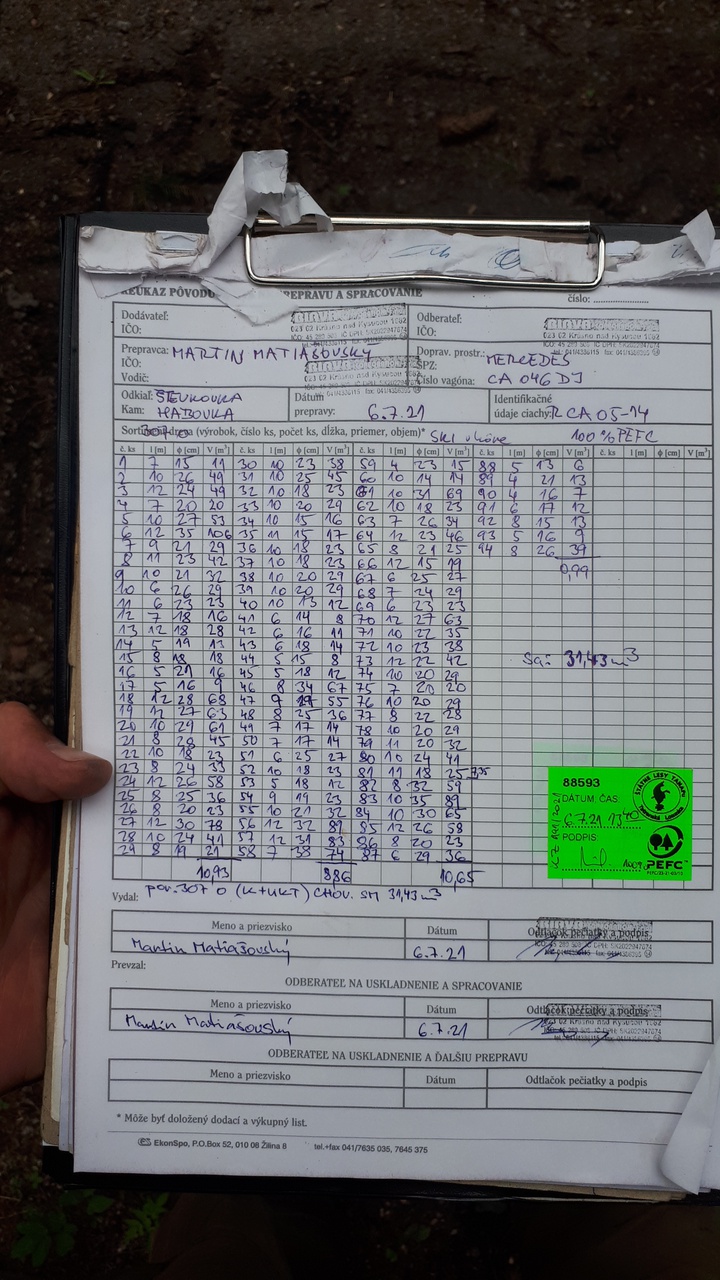 PREPRAVU A SPRACOVANIE
číslo: ....................
Dodávateľ:
IČO:
Odberateľ:
IČO:
Prepravca: MARTIN MATIAŠOVSKÝ
IČO:
Vodič:
Doprav. prostr.: MERCEDES
ŠPZ:
Číslo vagóna: CA 046 DJ
Odkiaľ: ŠTEVKOVKA
Kam: HABOVKA
Dátum
prepravy: 6.7.21
Identifikačné
údaje ciachy: CA 05-14
(výrobok, číslo ks, počet ks, dĺžka, priemer, objem)* 100 % PEFC
č. ks l [m] φ [cm] V [m³] č. ks l [m] φ [cm] V [m³] č. ks l [m] φ [cm] V [m³] č. ks l [m] φ [cm] V [m³]
1 7 15 11 30 10 23 38 59 4 23 15 88 5 13 6
2 10 26 49 31 10 25 45 60 10 14 14 89 4 21 13
3 12 24 49 32 10 18 23 61 10 31 69 90 4 16 7
4 7 20 20 33 10 20 29 62 10 18 23 91 6 17 12
5 10 27 53 34 10 15 16 63 7 26 34 92 8 15 13
6 12 35 106 35 11 15 17 64 12 23 46 93 5 16 9
7 9 21 29 36 10 18 23 65 8 21 25 94 8 26 39
8 11 23 42 37 10 18 23 66 12 15 19
0,99
9 10 21 32 38 10 20 29 67 6 25 27
10 6 26 29 39 10 20 29 68 7 24 29
11 6 23 23 40 10 13 12 69 6 23 23
12 7 18 16 41 6 14 8 70 12 27 63
13 12 18 28 42 6 16 11 71 10 22 35
14 5 19 13 43 6 18 14 72 10 23 38
15 8 18 18 44 5 15 8 73 12 22 42
31,43 m³
16 5 21 16 45 5 18 12 74 10 20 29
17 5 16 9 46 8 34 67 75 7 20 20
18 12 28 68 47 9 55 76 10 20 29
19 12 27 63 48 8 25 36 77 8 22 28
20 10 29 61 49 7 17 14 78 10 20 29
21 8 28 45 50 7 17 14 79 11 20 32
22 10 18 23 51 6 25 27 80 10 24 41
23 8 24 33 52 10 18 23 81 11 18 25
24 12 26 58 53 5 18 12 82 8 32 59
25 8 25 36 54 9 19 23 83 10 35 89
26 8 20 23 55 10 21 32 84 10 30 65
27 12 30 78 56 12 32 89 85 12 26 58
28 10 24 41 57 12 31 83 86 8 20 23
29 8 19 21 58 7 38 74 87 6 29 36
10,93 886 10,65
88593
DÁTUM, ČAS:
6.7.21 13
PODPIS:
ŠTÁTNE LESY TANAPu
PEFC
Vydal: por. 307 0 (K+UKT) CHOV. SM 31,43 m³
Meno a priezvisko Dátum Odtlačok pečiatky a podpis
Martin Matiašovský 6.7.21
Prevzal:
ODBERATEĽ NA USKLADNENIE A SPRACOVANIE
Meno a priezvisko Dátum Odtlačok pečiatky a podpis
Martin Matiašovský 6.7.21
ODBERATEĽ NA USKLADNENIE A ĎALŠIU PREPRAVU
Meno a priezvisko Dátum Odtlačok pečiatky a podpis
* Môže byť doložený dodací a výkupný list.
EkonSpo, P.O.Box 52, 010 08 Žilina 8 tel.+fax 041/7635 035, 7645 375